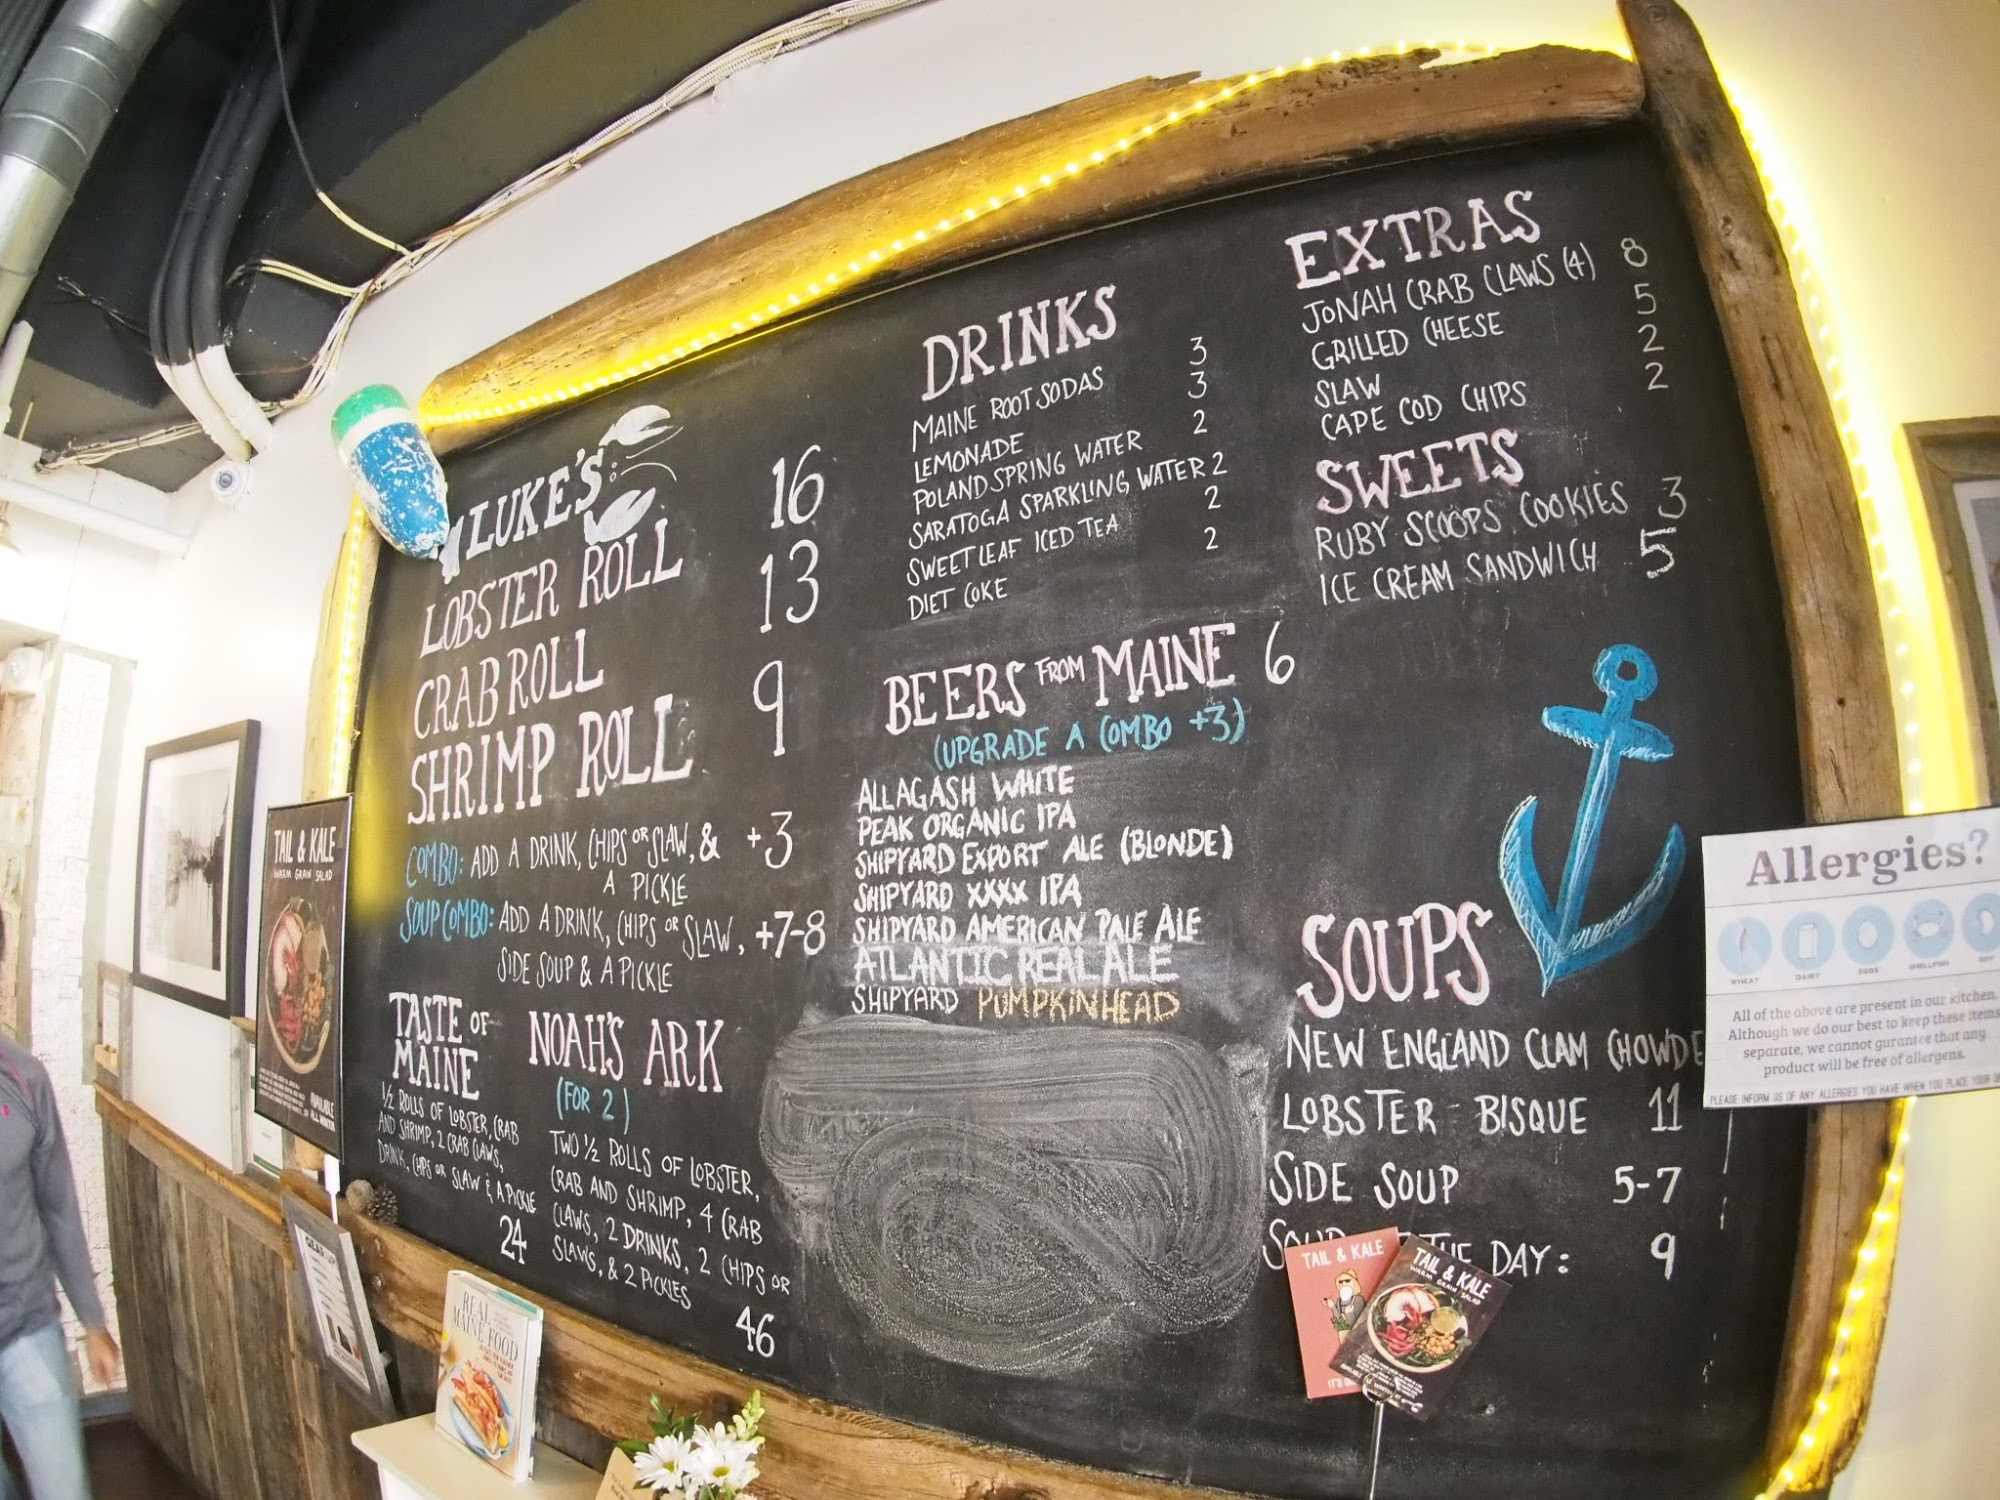 LUKE'S
LOBSTER ROLL 16
CRAB ROLL 13
SHRIMP ROLL 9
COMBO: ADD A DRINK, CHIPS OR SLAW, & +3
A PICKLE
SOUP COMBO: ADD A DRINK, CHIPS OR SLAW, +7-8
SIDE SOUP & A PICKLE
TASTE OF
MAINE
1/2 ROLLS OF LOBSTER, CRAB
AND SHRIMP, 2 CRAB CLAWS,
DRINK, CHPS OR SLAW & A PICKLE
24
NOAH'S ARK
(FOR 2)
TWO 1/2 ROLLS OF LOBSTER,
CRAB AND SHRIMP, 4 CRAB
CLAWS, 2 DRINKS, 2 CHIPS OR
SLAWS, & 2 PICKLES
46
DRINKS
MAINE ROOT SODAS 3
LEMONADE 3
POLAND SPRING WATER 2
SARATOGA SPARKLING WATER 2
SWEET LEAF ICED TEA 2
DIET COKE 2
BEERS FROM MAINE 6
(UPGRADE A COMBO +3)
ALLAGASH WHITE
PEAK ORGANIC IPA
SHIPYARD EXPORT ALE (BLONDE)
SHIPYARD XXXX IPA
SHIPYARD AMERICAN PALE ALE
ATLANTIC REAL ALE
SHIPYARD PUMPKINHEAD
EXTRAS
JONAH CRAB CLAWS (4) 8
GRILLED CHEESE 5
SLAW 2
CAPE COD CHIPS 2
SWEETS
RUBY SCOOPS COOKIES 3
ICE CREAM SANDWICH 5
SOUPS
NEW ENGLAND CLAM CHOWDE
LOBSTER BISQUE 11
SIDE SOUP 5-7
SOUP THE DAY: 9
Allergies?
WHEAT DAIRY EGGS SHELLFISH SOY
All of the above are present in our kitchen.
Although we do our best to keep these items
separate, we cannot gurantee that any
product will be free of allergens.
PLEASE INFORM US OF ANY ALLERGIES YOU HAVE WHEN YOU PLACE YOUR
TAIL & KALE
WARM GRAIN SALAD
AVAILABLE
ALL WINTER
REAL
MAINE FOOD
TAIL & KALE
IT'S
TAIL & KALE
WARM GRAIN SALAD